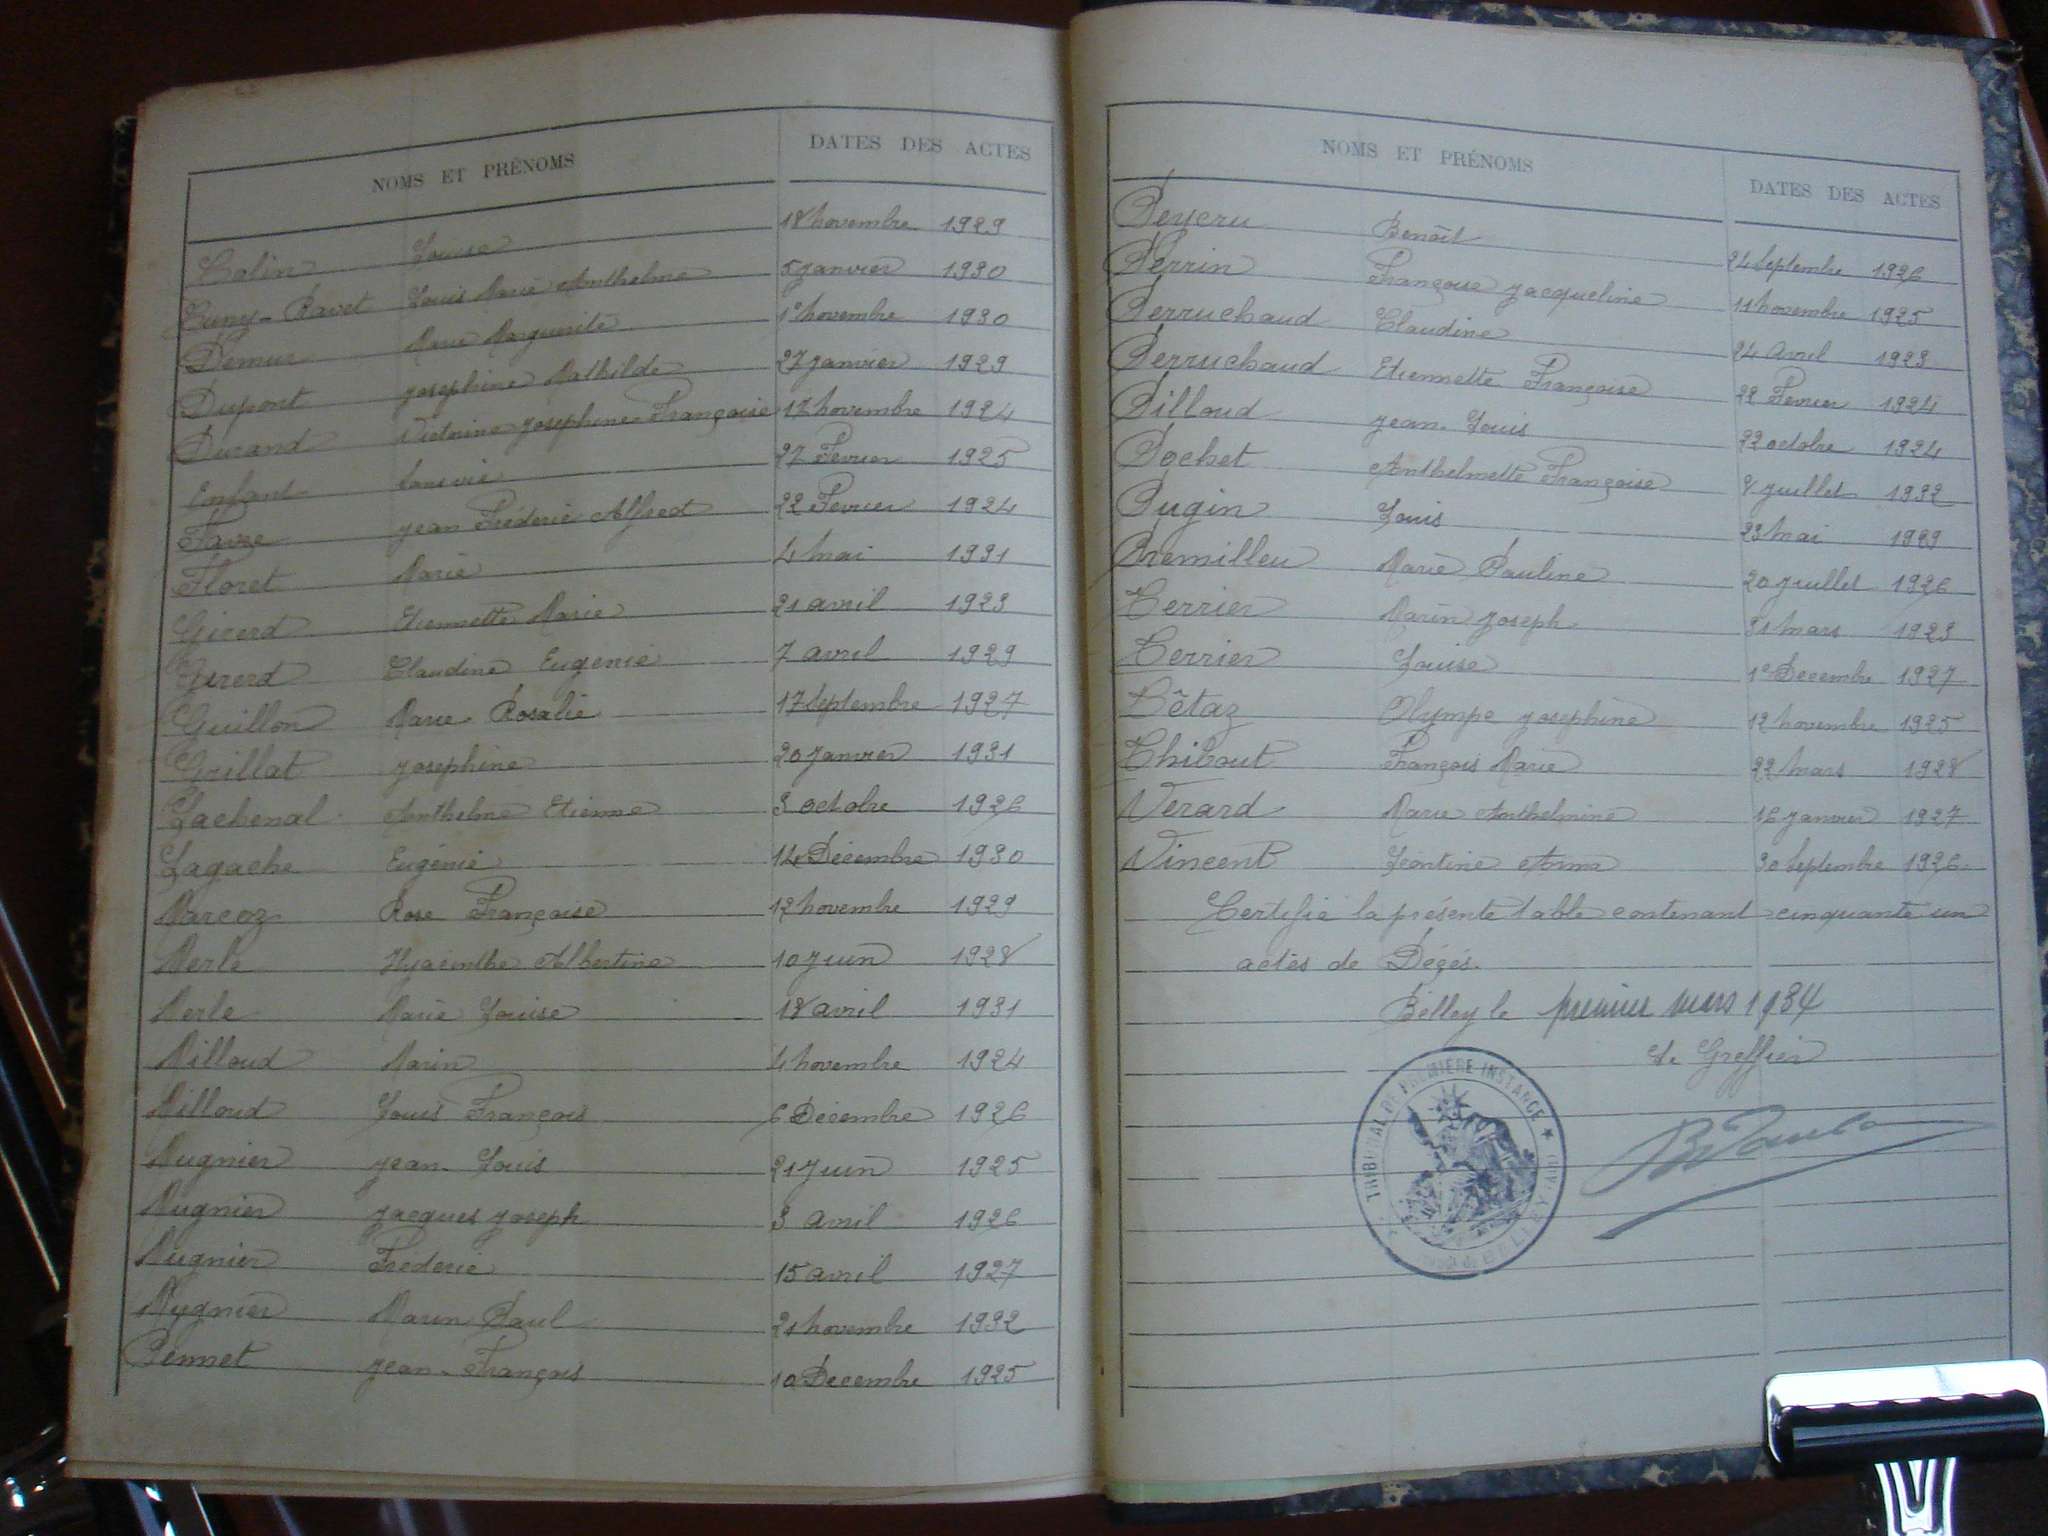 NOMS ET PRÉNOMS DATES DES ACTES
Calin Louise 18 novembre 1929
Cuny-Ravet Louis Marie Anthelme 5 janvier 1930
Demur Marie Marguerite 1er novembre 1930
Dupont Josephine Mathilde 27 janvier 1929
Durand Victorine Josephine Françoise 12 novembre 1924
Enfant sans vie 27 Fevrier 1925
Favre Jean Fréderic Alfred 22 Fevrier 1924
Floret Marie 4 mai 1931
Girerd Etiennette Marie 21 avril 1923
Girerd Claudine Eugenie 7 avril 1929
Guillon Marie Rosalie 17 Septembre 1927
Grillat Josephine 20 janvier 1931
Lachenal Anthelme Etienne 3 octobre 1926
Lagache Eugénie 14 Décembre 1930
Marcoz Rose Françoise 12 novembre 1929
Merle Hyacinthe Albertine 10 Juin 1928
Merle Marie Louise 18 avril 1931
Milloud Marin 4 novembre 1924
Milloud Louis François 6 Décembre 1926
Mugnier Jean-Louis 21 Juin 1925
Mugnier Jacques Joseph 3 avril 1926
Mugnier Fréderic 15 avril 1927
Mugnier Marin Paul 21 novembre 1932
Pennet Jean-François 10 Decembre 1925
NOMS ET PRÉNOMS DATES DES ACTES
Benoît 24 Septembre 1926
Perrin Françoise Jacqueline 11 novembre 1925
Perruchaud Claudine 24 Avril 1923
Perruchaud Etiennette Françoise 22 Fevrier 1924
Pilloud Jean-Louis 22 octobre 1924
Pochet Anthelmette Françoise 8 Juillet 1932
Pugin Louis 23 mai 1929
Premilleu Marie Pauline 20 Juillet 1926
Terrier Marin Joseph 31 mars 1923
Terrier Louise 1er Decembre 1927
Têtaz Olympe Josephine 12 novembre 1925
Thibout François Marie 22 mars 1928
Verard Marie Anthelmine 16 janvier 1927
Vincent Léontine Anna 30 Septembre 1926
Certifié la présente table contenant cinquante un
actes de Décés.
Belley le premier mars 1934
Le Greffier
TRIBUNAL DE PREMIÈRE INSTANCE BELLEY (AIN)